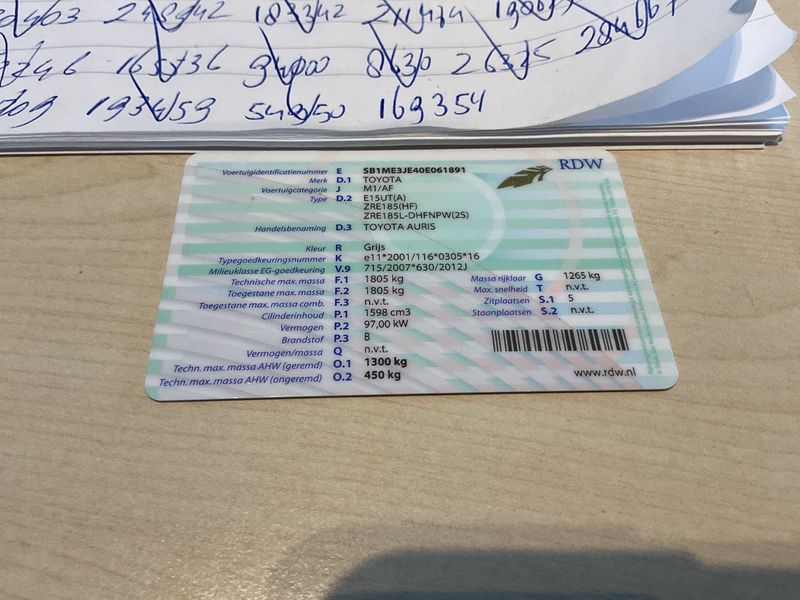 165736 94000 8630 26375 284667
193459 548350 169354
RDW
Voertuigidentificatienummer E SB1ME3JE40E061891
Merk D.1 TOYOTA
Voertuigcategorie J M1/AF
Type D.2 E15UT(A)
ZRE185(HF)
ZRE185L-DHFNPW(2S)
Handelsbenaming D.3 TOYOTA AURIS
Kleur R Grijs
Typegoedkeuringsnummer K e11*2001/116*0305*16
Milieuklasse EG-goedkeuring V.9 715/2007*630/2012J
Technische max. massa F.1 1805 kg Massa rijklaar G 1265 kg
Toegestane max. massa F.2 1805 kg Max. snelheid T n.v.t.
Toegestane max. massa comb. F.3 n.v.t. Zitplaatsen S.1 5
Cilinderinhoud P.1 1598 cm3 Staanplaatsen S.2 n.v.t.
Vermogen P.2 97,00 kW
Brandstof P.3 B
Vermogen/massa Q n.v.t.
Techn. max. massa AHW (geremd) O.1 1300 kg
Techn. max. massa AHW (ongeremd) O.2 450 kg
www.rdw.nl